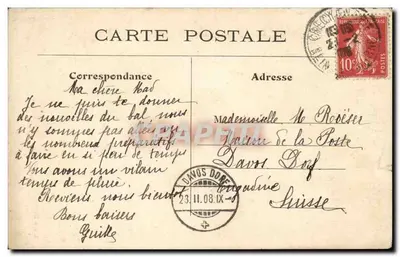 CARTE POSTALE
Correspondance
Adresse
Ma chère Mad
Je ne puis te donner
des nouvelles du bal, nous
n'y sommes pas allés
les nombreux préparatifs
à faire en si peu de temps
Nous avons un vilain
temps de pluie.
Reviens nous bientôt
Bons baisers
Mademoiselle M Roëser
Maison de la Poste
Davos Dorf
Engadine
Suisse
DAVOS DORF
23.II.08.IX
10
POSTES